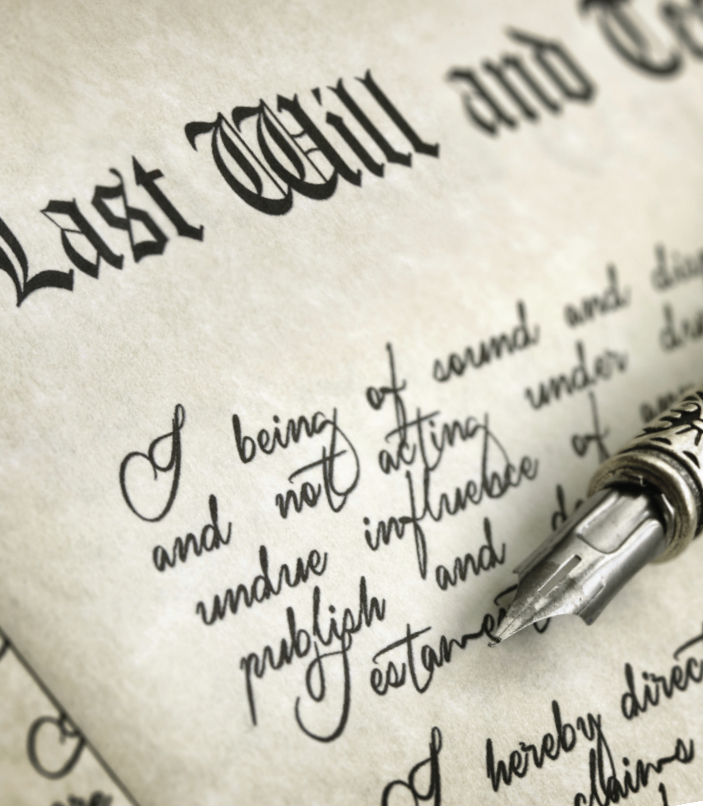 Last Will and
I being of sound and
and not acting under
undue influebce of
publish and
estame
I hereby direct
claims